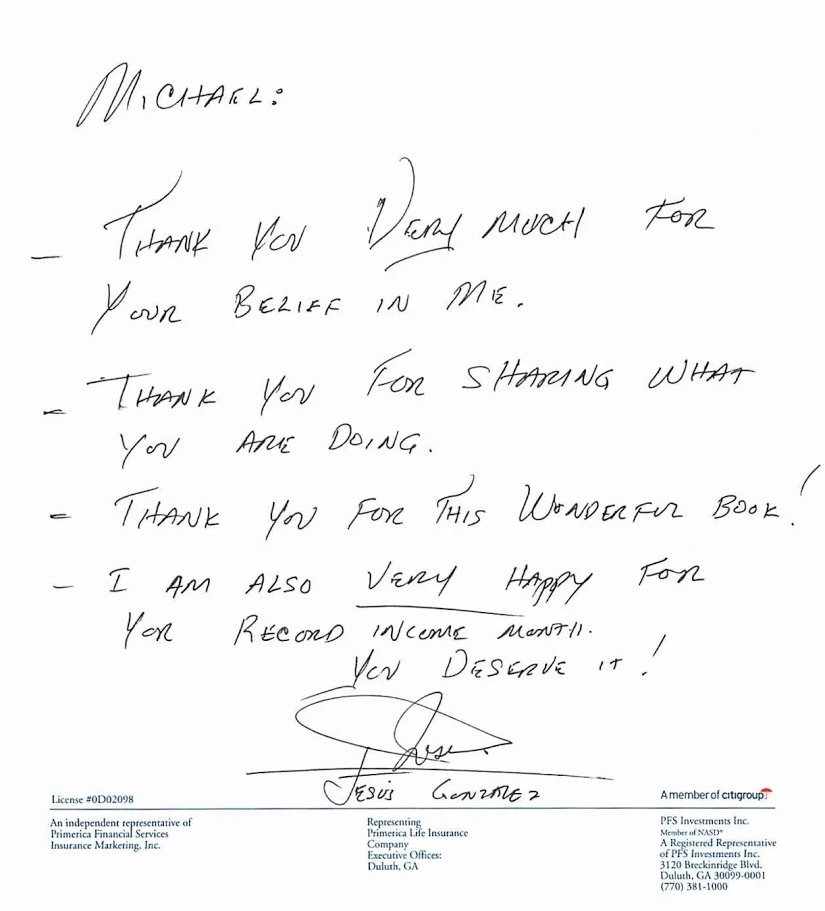 MICHAEL:
- THANK YOU VERY MUCH FOR
YOUR BELIEF IN ME.
- THANK YOU FOR SHARING WHAT
YOU ARE DOING.
- THANK YOU FOR THIS WONDERFUL BOOK!
- I AM ALSO VERY HAPPY FOR
YOR RECORD INCOME MONTH.
YOU DESERVE IT!
Jesus
JESÚS GONZALEZ
License #0D02098
A member of citigroup
An independent representative of
Primerica Financial Services
Insurance Marketing, Inc.
Representing
Primerica Life Insurance
Company
Executive Offices:
Duluth, GA
PFS Investments Inc.
Member of NASD®
A Registered Representative
of PFS Investments Inc.
3120 Breckinridge Blvd.
Duluth, GA 30099-0001
(770) 381-1000